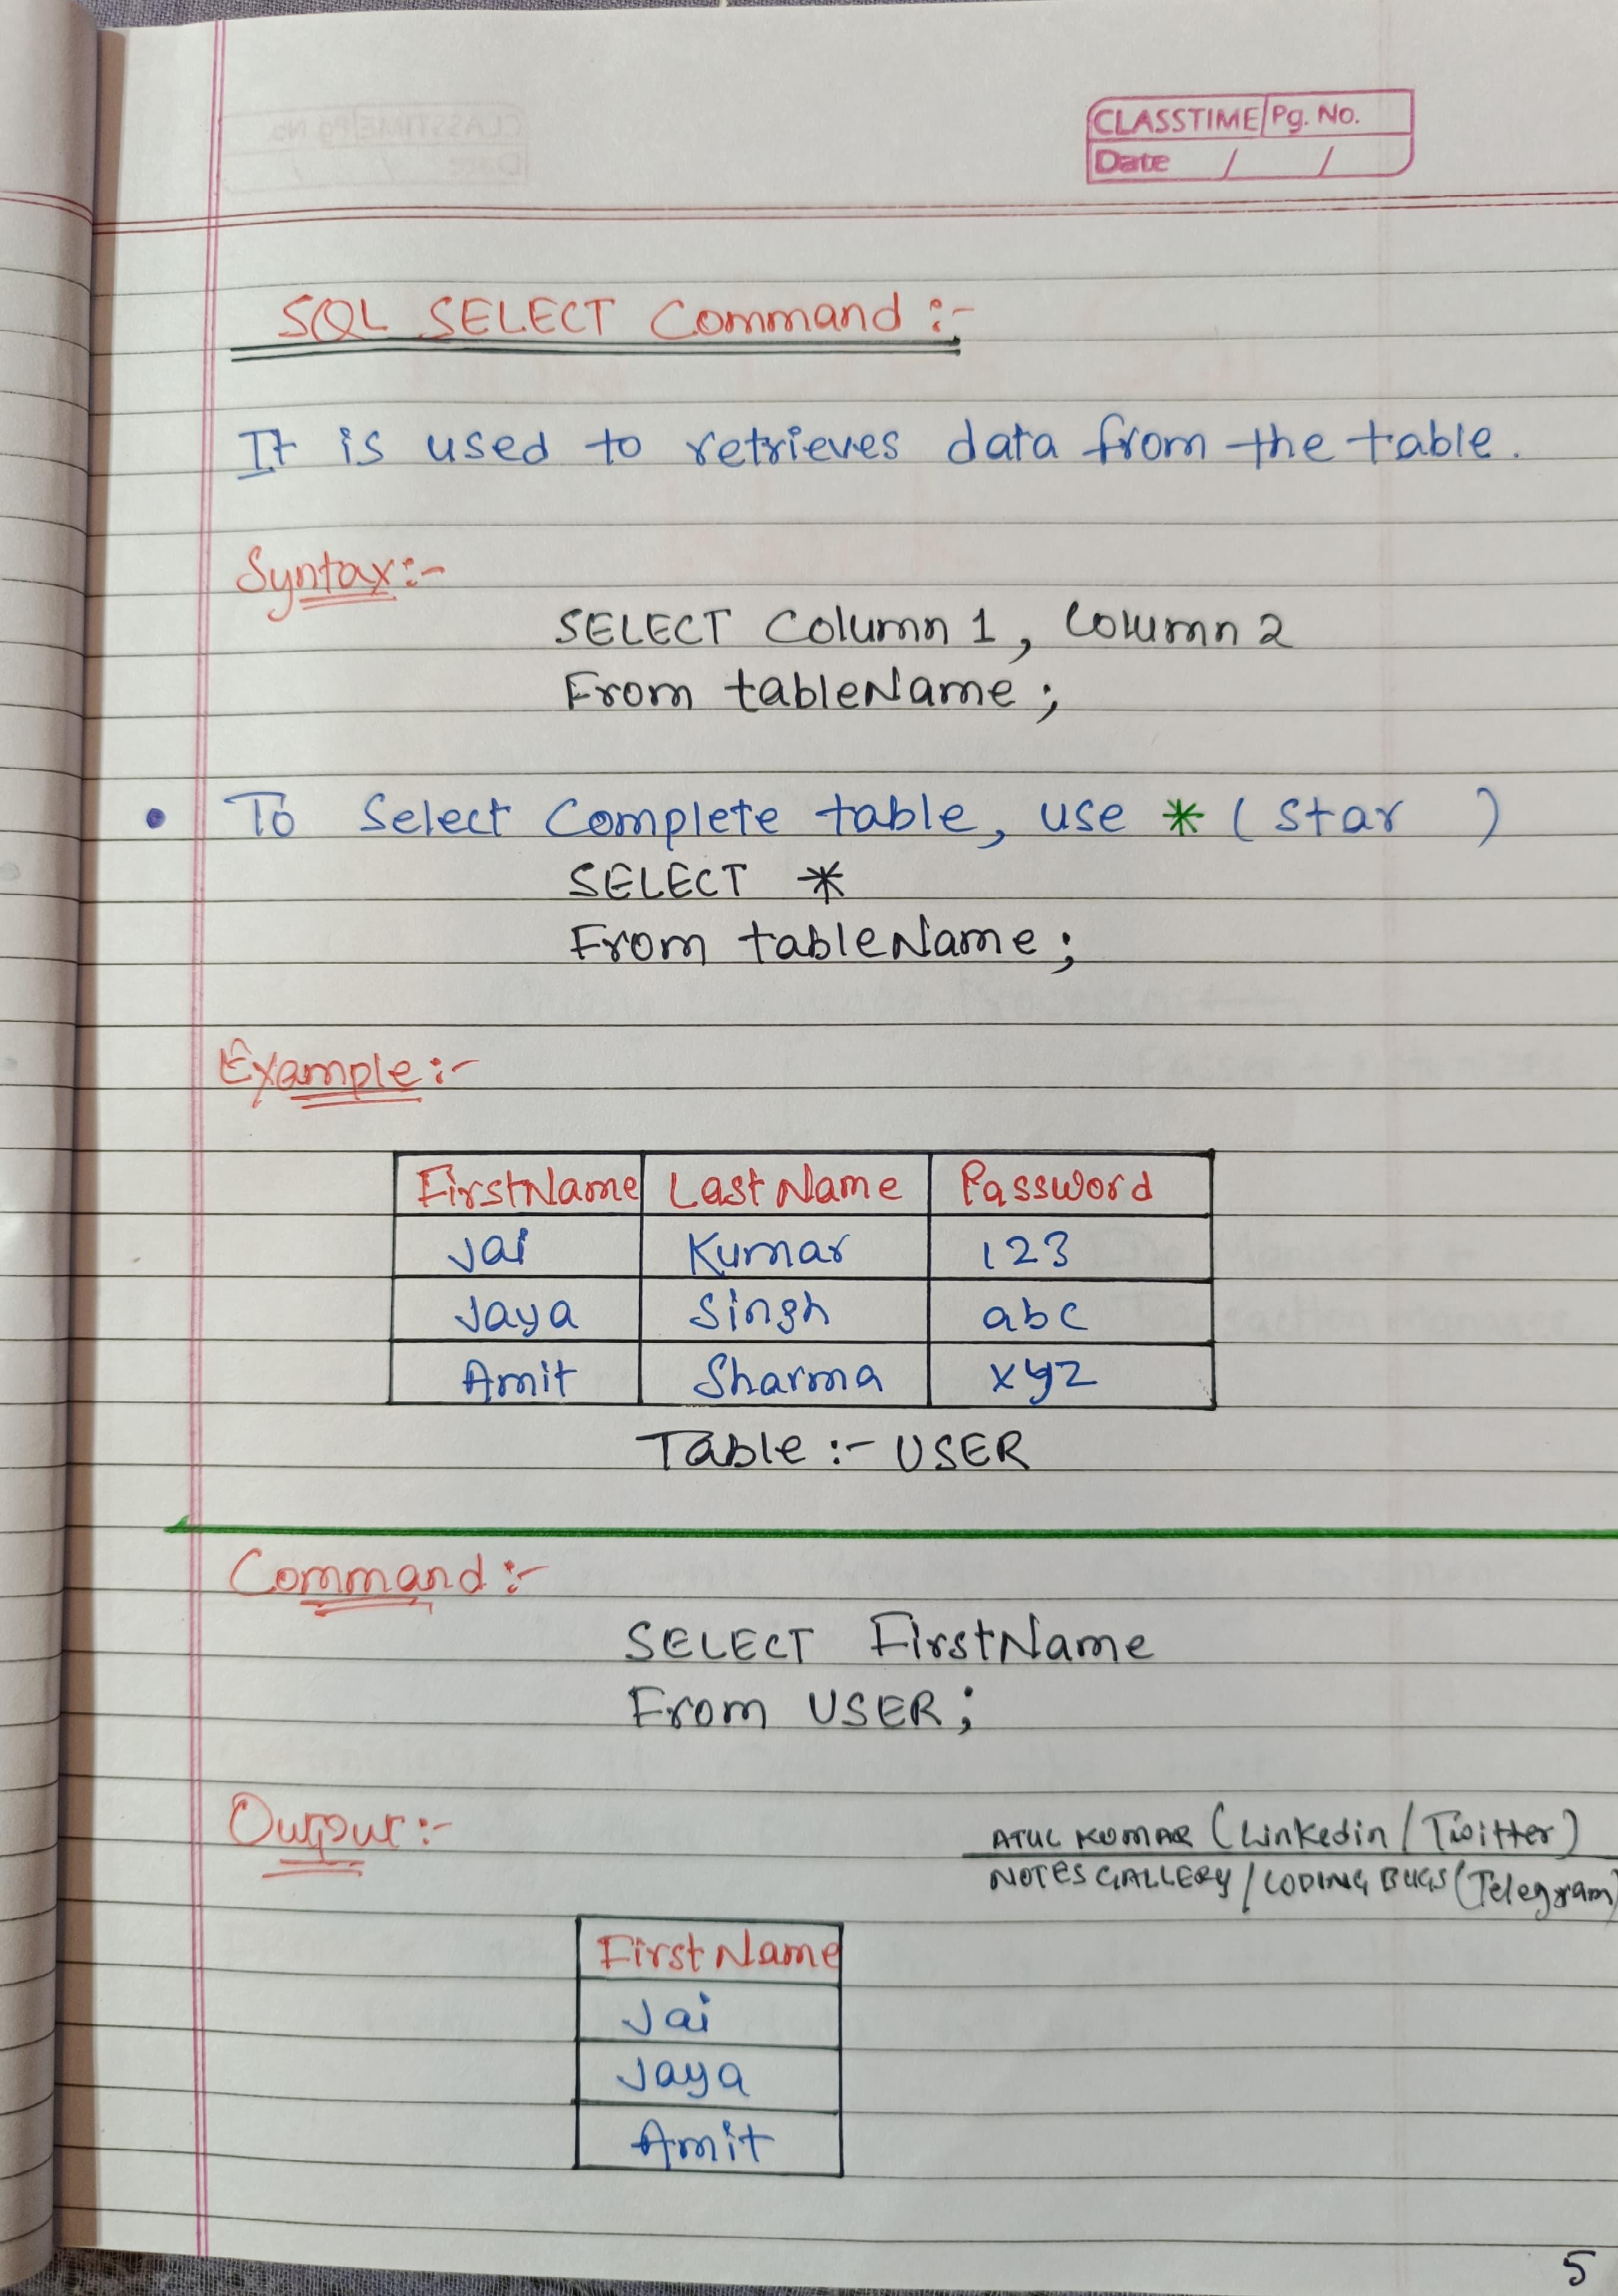 CLASSTIME Pg. No.
Date / /
SQL SELECT Command :-
It is used to retrieves data from the table.
Syntax :-
SELECT Column 1, Column 2
From tableName ;
• To Select Complete table, use * ( star )
SELECT *
From tableName ;
Example :-
FirstName Last Name Password
Jai Kumar 123
Jaya Singh abc
Amit Sharma xyz
Table :- USER
Command :-
SELECT FirstName
From USER ;
Output :-
ATUL KUMAR (Linkedin / Twitter)
NOTES GALLERY / CODING BUGS (Telegram)
First Name
Jai
Jaya
Amit
5